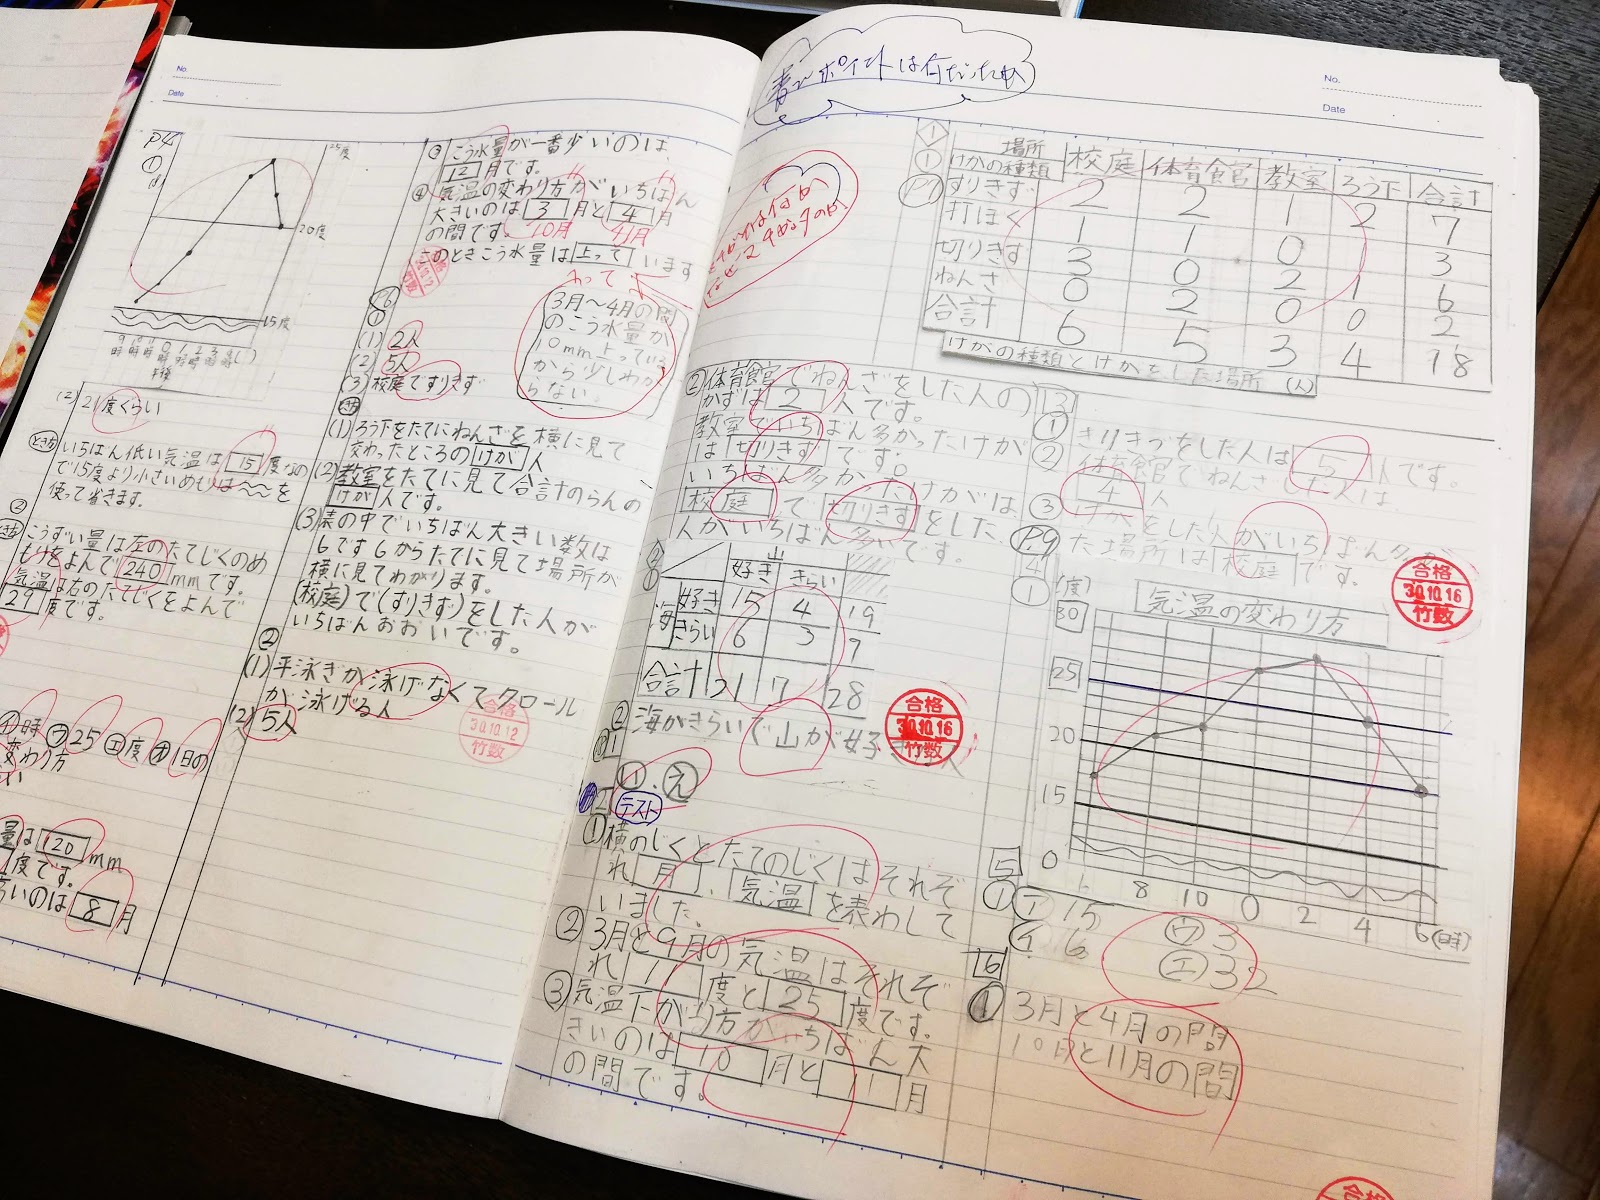 No.
Date
P4
①
25度
20度
15度
(2) 21度くらい
いちばん低い気温は15度なの
で15度より小さいめもりは〜〜を
使って省きます。
②
こうずい量は左のたてじくのめ
もりをよんで240mmです。
気温は右のたてじくをよんで
29度です。
㋑時㋒25㋓度㋔1日の
変わり方
量は120mm
度です。
高いのは8月
③こう水量が一番少いのは、
12月です。
④気温の変わり方がいちばん
大きいのは3月と4月
の間です。10月
このときこう水量は上っています
3月〜4月の間
のこう水量が
10mm上っている
から少しわか
らない。
合格
30.10.12
竹数
6
①
(1) 2人
(2) 5人
(3) 校庭ですりきず
(1) ろう下をたてにねんざを横に見て
交わったところのけが人
(2) 教室をたてに見て合計のらんの
けが人です。
(3) 表の中でいちばん大きい数は
6です6からたてに見て場所が
横に見てわかります。
(校庭)で(すりきず)をした人が
いちばんおおいです。
②
(1) 平泳ぎが泳げなくてクロール
が泳げる人
(2) 5人
合格
30.10.12
竹数
ポイントは何だったか
No.
Date
1
①
P.7
場所
けがの種類 校庭 体育館 教室 ろう下 合計
すりきず 2 2 1 2 7
打ぼく 1 1 0 3
切りきず 3 0 2 1 6
ねんざ 0 2 0 0 2
合計 6 5 3 4 18
けがの種類とけがをした場所 (人)
②体育館でねんざをした人の
かずは2人です。
教室でいちばん多かったけが
は切りきずです。
いちばん多かったけがは
校庭で切りきずをした
人がいちばん多いです。
2
①
山
好き きらい
海 好き 15 4 19
きらい 6 3 9
合計 21 7 28
②海がきらいで山が好き人
合格
30.10.16
竹数
い、え
テスト
①横のじくとたてのじくはそれぞ
れ月、気温を表わして
いました。
②3月と9月の気温はそれぞ
れ11度と25度です。
③気温下がり方がいちばん大
きいのは10月と11月
の間です。
3
①きりきづをした人は5人です。
②体育館でねんざした人は、
4人
③けがをした人がいちばん多か
った場所は校庭です。
合格
30.10.16
竹数
P.9
4
①
(度)
気温の変わり方
30
25
20
15
0
6 8 10 0 2 4 6(時)
5
①
㋐15 ㋒3
㋑6 ㋓32
6
①3月と4月の間
10月と11月の間
合格